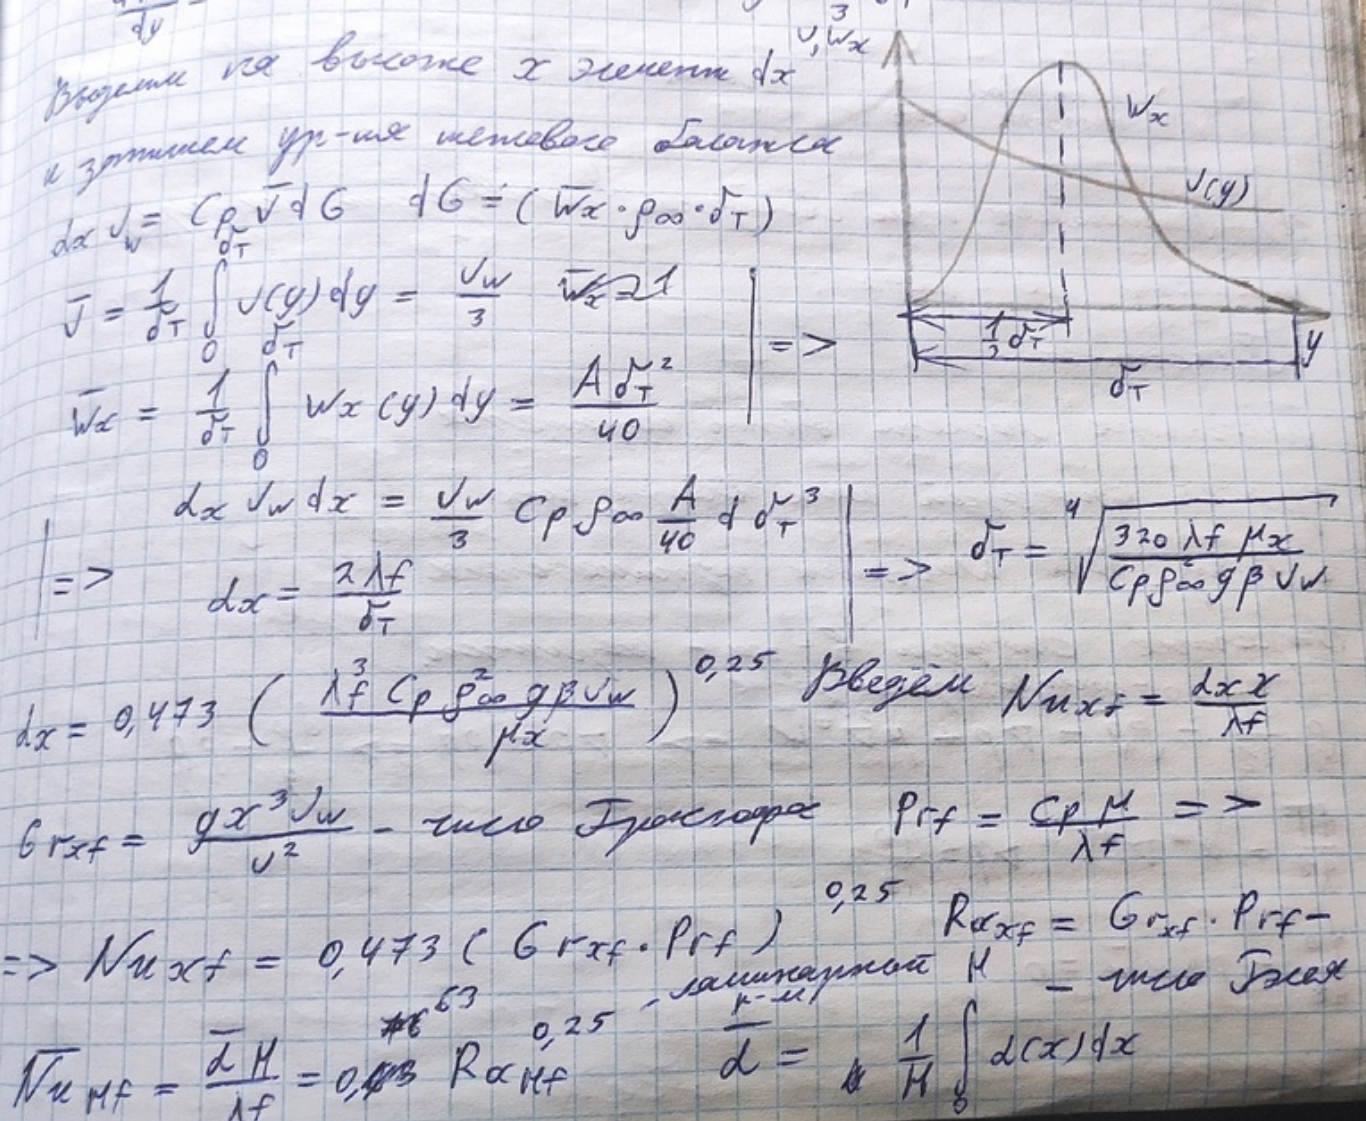 dy
3
Выделим на высоте x элемент dx
и запишем ур-ия теплового баланса
αx ϑw = Cp ϑ̄ dG   dG = (W̄x · ρ∞ · δT)
ϑ̄ = 1/δT ∫₀^δT ϑ(y) dy = ϑw/3
W̄x = 1/δT ∫₀^δT Wx (y) dy = A δT²/40   | =>
ϑ, Wx
Wx
ϑ(y)
1/3 δT
y
δT
| => αx ϑw dx = ϑw/3 Cp ρ∞ A/40 d δT³
αx = 2λf/δT   | => δT = ⁴√(320 λf μx / Cp ρ∞² g β ϑw)
αx = 0,473 (λf³ Cp ρ∞² g β ϑw / μx)^0,25   Введём Nu xf = αx x/λf
Gr xf = g x³ ϑw/ν² - число Грасгофа   Prf = Cp μ/λf =>
=> Nu xf = 0,473 (Gr xf · Prf)^0,25   Ra xf = Gr xf · Prf –
- ламинарный р-м   – число Рэлея
N̄u Hf = ᾱ H/λf = 0,63 Ra Hf^0,25   ᾱ = 1/H ∫₀^H α(x) dx